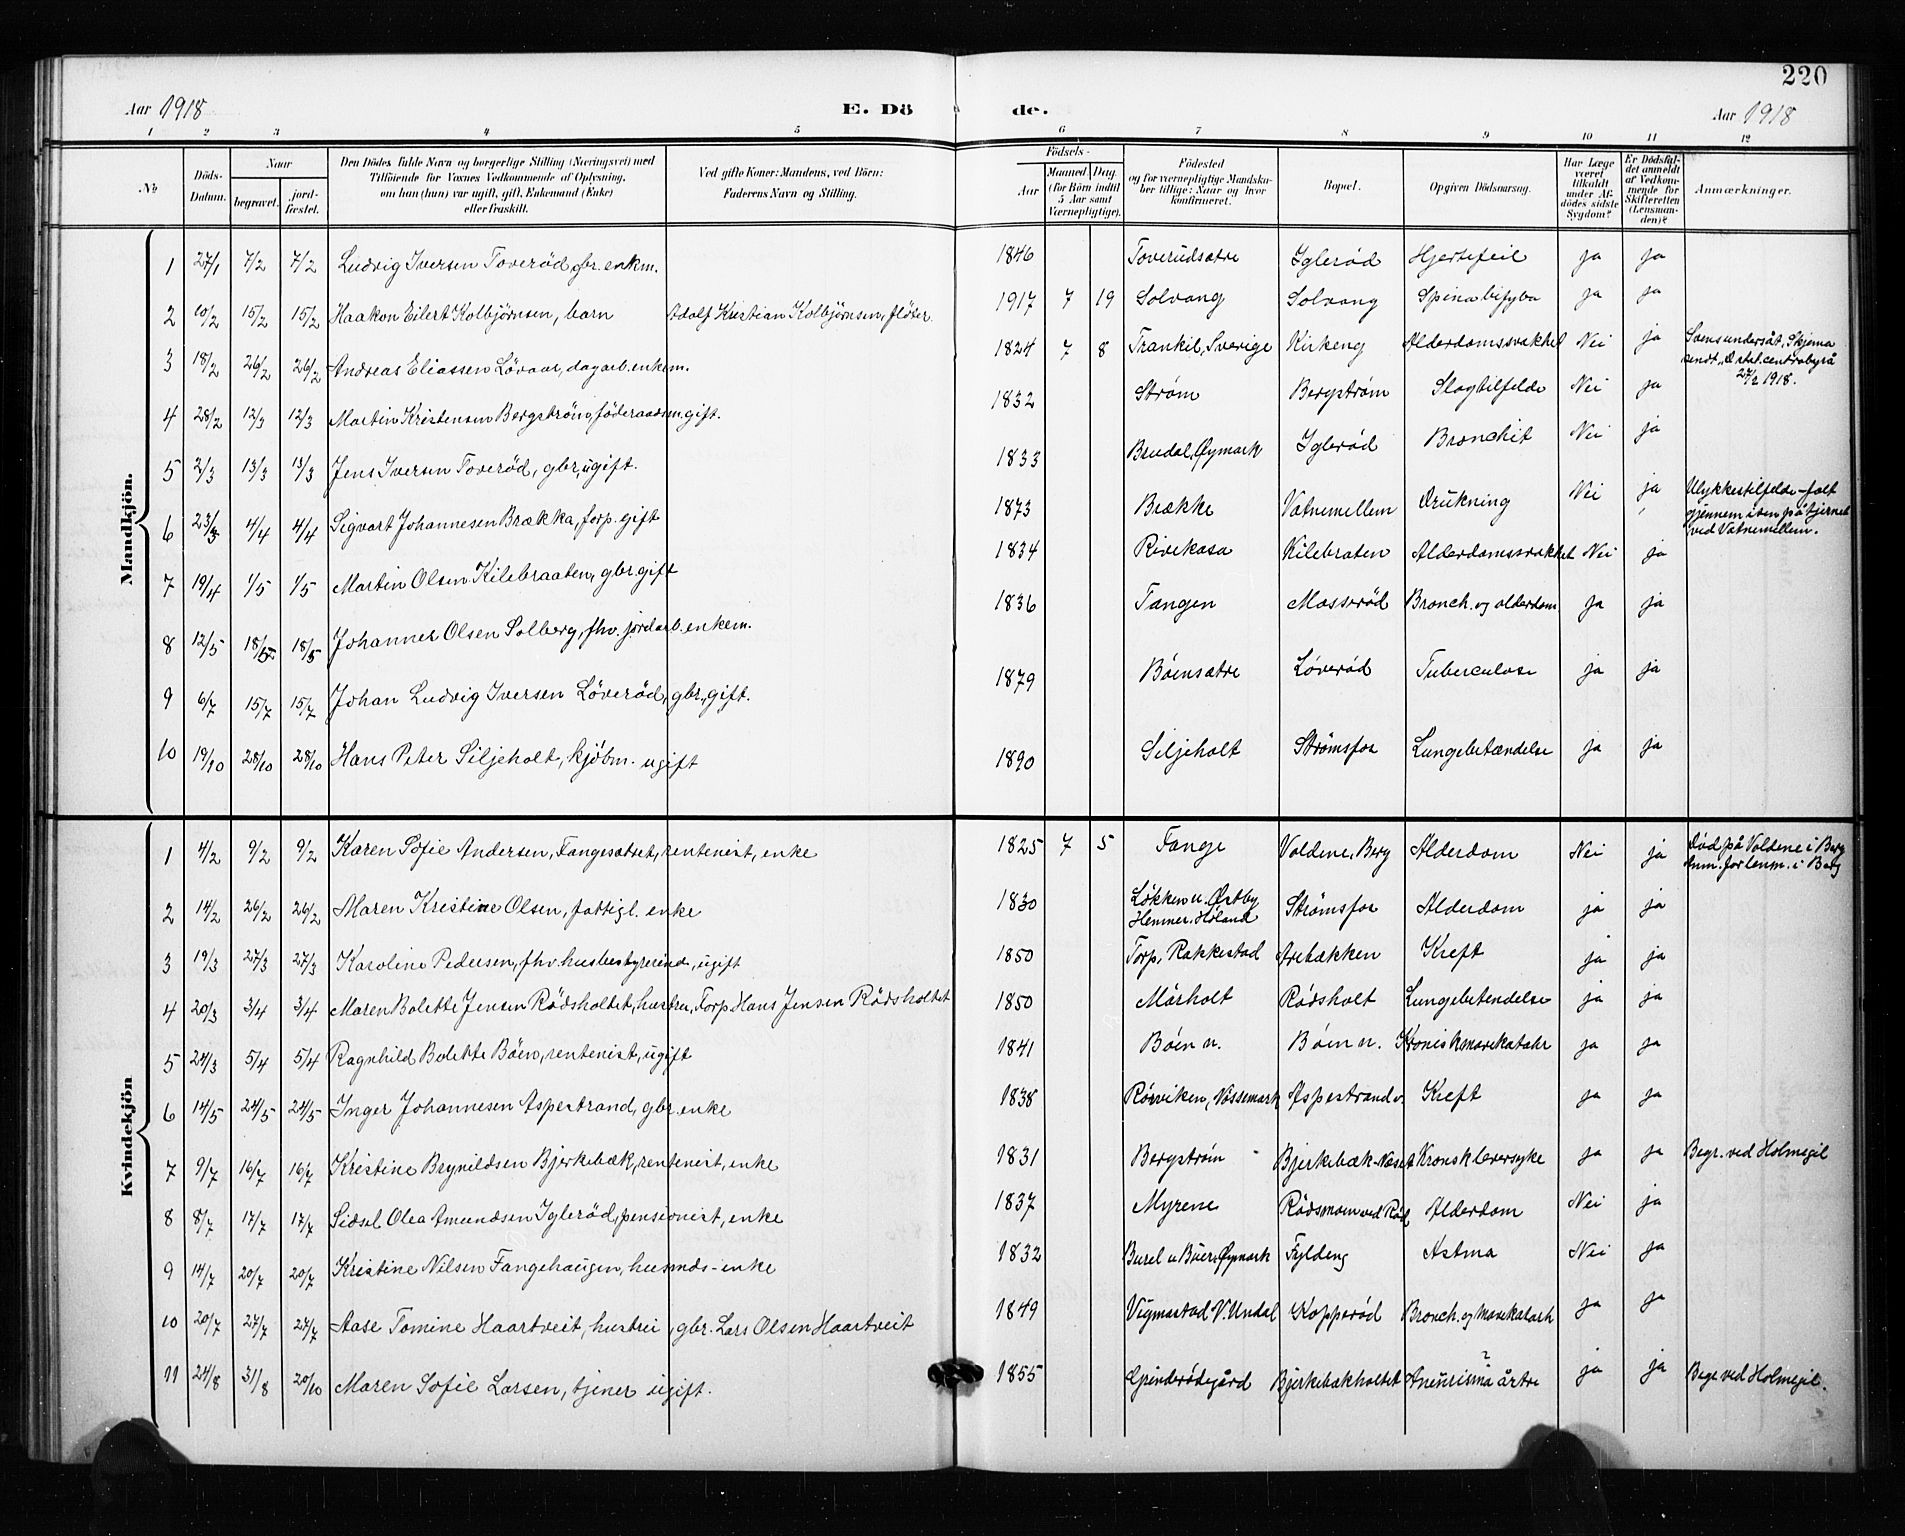 220
Aar 1918 E. Dö de. Aar 1918
1 2 3 4 5 6 7 8 9 10 11 12
№ Döds-Datum. Naar begravet. jordfæstet. Den Dödes fulde Navn og borgerlige Stilling (Næringsvei) med Tilföiende for Voxnes Vedkommende af Oplysning, om han (hun) var ugift, gift, Enkemand (Enke) eller fraskilt. Ved gifte Koner: Mandens, ved Börn: Faderens Navn og Stilling. Födsels- Aar Maaned Dag. (for Börn indtil 5 Aar samt Værnepligtige). Födested og for værnepligtige Mandskaber tillige: Naar og hvor konfirmeret. Bopæl. Opgiven Dödsaarsag. Har Læge været tilkaldt under Afdödes sidste Sygdom? Er Dödsfaldet anmeldt af Vedkommende for Skifteretten (Lensmanden)? Anmærkninger.
Mandkjön.
1 27/1 7/2 7/2 Ludvig Iversen Toveröd, gbr. enkm. 1846 Toverudsætre Iglerød Hjertefeil ja ja
2 10/2 15/2 15/2 Haakon Eilert Kolbjörnsen, barn Adolf Kristian Kolbjörnsen, flöter. 1917 7 19 Solvang Solvang Spina bifyba ja ja
3 18/2 26/2 26/2 Andreas Eliassen Lövaas, dagarb. enkem. 1824 7 8 Trankil, Sverige Kirkeng Alderdomssvakhet Nei ja Svensundersåt. Skjema sendt „D. stat. centrabyrå 27/2 1918.
4 28/2 12/3 12/3 Martin Kristensen Bergström, föderaadsm. gift. 1832 Strøm Bergstrøm Slagtilfelde Nei ja
5 2/3 13/3 13/3 Jens Iversen Toveröd, gbr, ugift. 1833 Brudal, Øymark Iglerød Bronchit Nei ja
6 23/3 4/4 4/4 Sigvart Johannesen Brækka, forp. gift 1873 Brække Vatnemellem Drukning Nei ja Ulykkestilfelde – falt gjennem isen på tjernet ved Vatnemellem.
7 19/4 1/5 1/5 Martin Olsen Kilebraaten, gbr. gift 1834 Rivekasa Kilebraten Alderdomssvakhet Nei ja
8 12/5 18/5 18/5 Johannes Olsen Solberg, fhv. jordarb. enkem. 1836 Tangen Mosserød Bronch. og alderdom ja ja
9 6/7 15/7 15/7 Johan Ludvig Iversen Löveröd, gbr, gift. 1879 Bøensætre Løverød Tuberculose ja ja
10 19/10 28/10 28/10 Hans Peter Siljeholt, kjöbm. ugift 1890 Siljeholt Strømsfos Lungebetændelse ja ja
Kvindekjön
1 4/2 9/2 9/2 Karen Sofie Andersen, Fangesætret, rentenist, enke 1825 7 5 Fange Voldene, Berg Alderdom Nei ja Død på Voldene i Berg Anm. for lensm. i Berg
2 14/2 26/2 26/2 Maren Kristine Olsen, fattigl. enke 1830 Løkken u. Østby Hemnes, Høland Strømsfos Alderdom ja ja
3 19/3 27/3 27/3 Karoline Pedersen, fhv. husbestyrerind, ugift 1850 Torp, Rakkestad Arebækken Kreft ja ja
4 20/3 3/4 3/4 Maren Bolette Jensen Rödsholtet, hustru, Forp. Hans Jensen Rödsholtet 1850 Mårholt Rødsholt Lungebetendelse ja ja
5 24/3 5/4 5/4 Ragnhild Bolette Böen, rentenist, ugift 1841 Bøen n. Bøen n. Kronisk mavekatahr ja ja
6 14/5 24/5 24/5 Inger Johannesen Aspestrand, gbr enke 1838 Rørviken, Vassemark Aspestrand v. Kreft ja ja
7 9/7 16/7 16/7 Kristine Brynildsen Bjerkebæk, rentenist, enke 1831 Bergstrøm Bjerkebæk-Neset Kronsk leversyke ja ja Begr. ved Holmegil
8 8/7 17/7 17/7 Sidsel Olea Amundsen Igleröd, pensionist, enke 1837 Myrene Rødsmoen ved Rød Alderdom Nei ja
9 14/7 20/7 20/7 Kristine Nilsen Fangehaugen, husmds-enke 1832 Burel u Buer, Øymark Fyldeng Astma Nei ja
10 20/7 27/7 27/7 Aase Tomine Haartveit, hustru, gbr. Lars Olsen Haartveit 1849 Vigmostad V. Undal Kopperød Bronch. og Mavekatarh ja ja
11 24/8 31/8 20/10 Maren Sofie Larsen, tjener ugift. 1855 Grinderødegård Bjerkebækholtet Aneurisma årtre ? ja ja Begr ved Holmegil.